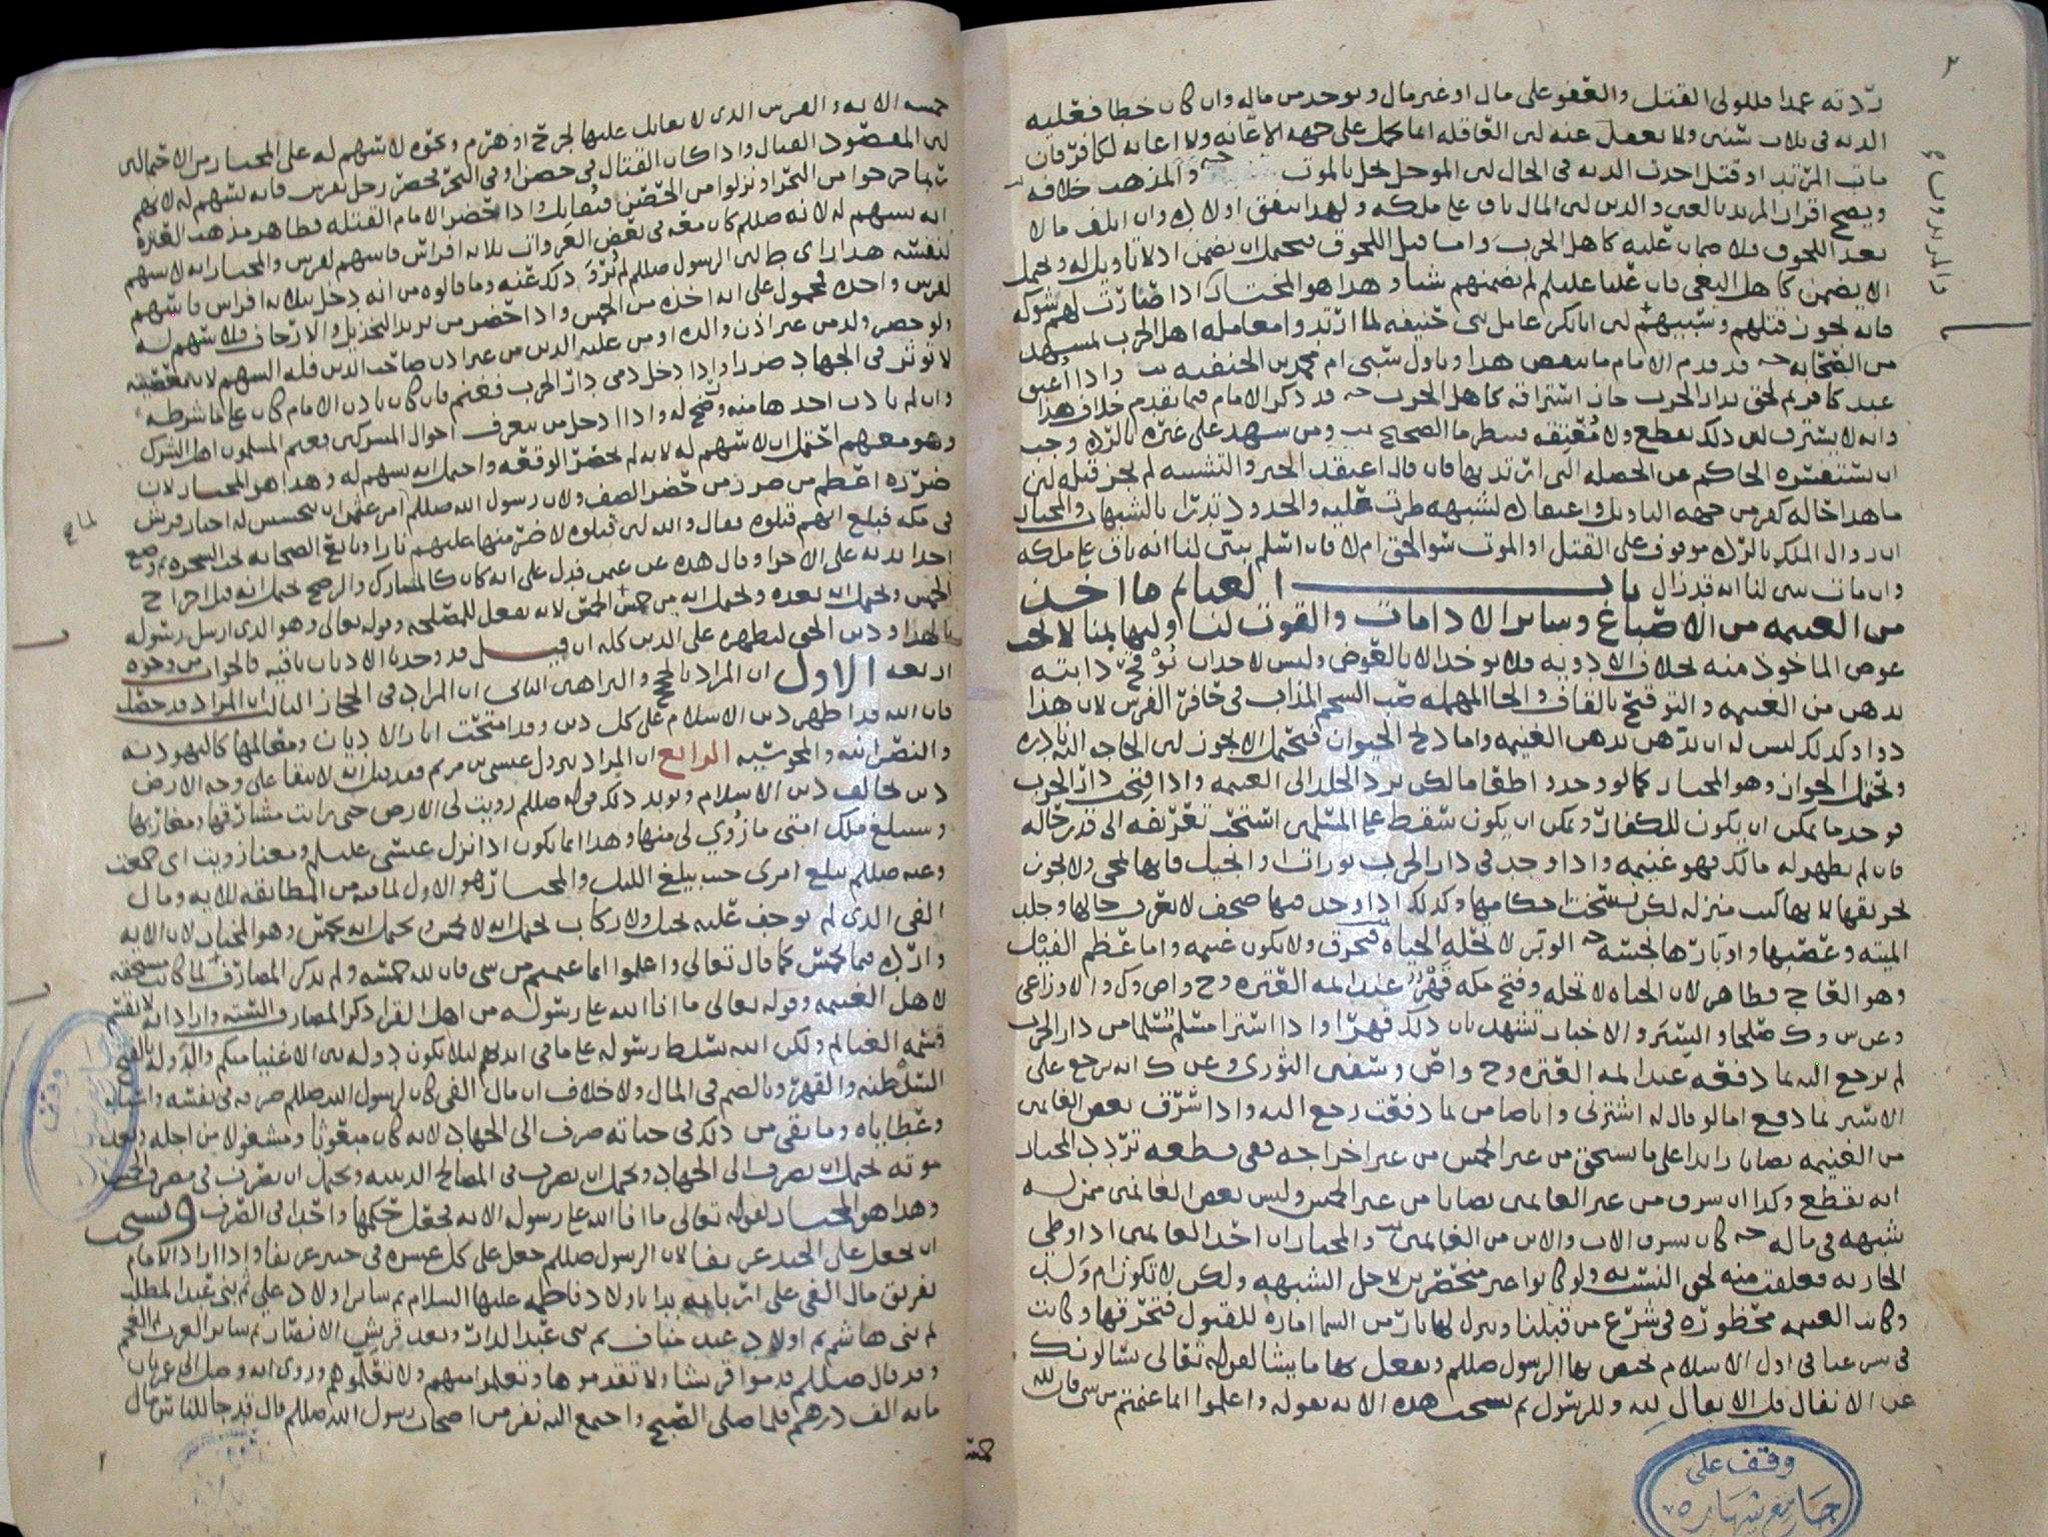 ردته عمدا فللولي القتل والعفو على مال او غير مال ويوخذ من ماله وان كان خطا فعليه
الديه في ثلاث سنين ولا يعقل عنه لان العاقله انما تحمل على جهه الاعانه ولا اعانه لكافر فان
مات المرتد او قتل اخذت الديه في الحال لان الموجل يحل بالموت والمذهب خلافه
ويصح اقرار المرتد بالعين والدين لان المال باق على ملكه ولهذا ينفق اولاده وان اتلف مالا
بعد اللحوق فلا ضمان عليه كاهل الحرب واما قبل اللحوق فيحتمل ان يضمن اذ لا تاويل له ويحتمل
الا يضمن كاهل البغي فان عليا عليلم لم يضمنهم شيا وهذا هو المختار اذا صارت لهم شوكه
فانه يجوز قتلهم وسبيهم لان ابا بكر عامل بني حنيفه لما ارتدوا معامله اهل الحرب بمشهد
من الصحابه قد قدم الامام ما ينقض هذا وتاول سبي ام محمد بن الحنفيه واذا اعتق
عبد كافر ثم لحق بدار الحرب جاز استرقاقه كاهل الحرب قد ذكر الامام فيما تقدم خلاف هذا
وانه لا يسترق لان ذلك يقطع ولا معتقه فينظر ما الصحيح ومن شهد على غيره بالرده وجب
ان يستفسره الحاكم عن الخصله التي ارتد بها فان قال اعتقد الجبر والتشبيه لم يجز قتله لان
ما هذا حاله كفر من جهه التاويل واعتقاده لشبهه طرت عليه والحدود تدرا بالشبهات والمختار
ان زوال الملك بالرده موقوف على القتل او الموت او اللحوق ام لا فان اسلم تبين لنا انه باق على ملكه
وان مات تبين لنا انه قد زال باب الغنايم ما اخذ
من الغنيمه من الاصباغ وساير الادامات والقوت لنا ولبهايمنا لا يجب
عوض الماخوذ منه بخلاف الادويه فلا يوخذ الا بالعوض وليس لاحد ان توقح دابته
بدهن من الغنيمه والتوقيح بالقاف والحا المهمله صب الشحم المذاب في حافر الفرس لان هذا
دوا وكذلك ليس له ان يدهن بدهن الغنيمه واما ذبح الحيوان فيحتمل الا يجوز لان الحاجه اليه نادره
ويحتمل الجواز وهو المختار كما لو وجدوا طعاما لكن يرد الجلد الى الغنيمه واذا فتحت دار الحرب
فوجد ما يمكن ان يكون للكفار ويمكن ان يكون سقط على المسلمين استحب تعريفه الى قدر حاله
فان لم يظهر له مالك فهو غنيمه واذا وجد في دار الحرب توراة وانجيل فانها تمحى ولا يجوز
تحريقها لانها كتب منزله لكن نسخت احكامها وكذلك اذا وجد فيها صحف لا يعرف حالها وجلد
الميته وعصبها واوبارها نجسه الوبر لا تحله الحياه فتحرق ولا تكون غنيمه واما عظم الفيل
وهو العاج فطاهر لان الحياه لا تحله وفتح مكه قهرا عند ايمه العتره وح واص وك والاوزاعي
وعن س وك صلحا والسير والاخبار تشهد بان ذلك قهرا واذا اشترا مسلم مسلما من دار الحرب
لم يرجع اليه بما دفعه عند ايمه العتره وح واص وسفين الثوري وعن ك انه يرجع على
الاسير بما دفع اما لو قال له اشترني وانا ضامن لما دفعت رجع اليه واذا سرق بعض الغانمين
من الغنيمه نصابا زايدا على ما يستحق من غير الخمس من غير اخراجه ففي قطعه تردد المختار
انه يقطع وكذا ان سرق من غير الغانمين نصابا من غير الخمس وليس بعض الغانمين ممن له
شبهه في ماله كان يسرق الاب والابن من الغانمين والمختار ان احد الغانمين اذا وطي
الجاريه فعلقت منه لحق النسب به ولو كانوا غير منحصرين لاجل الشبهه ولكن لا تكون ام ولد
وكانت الغنيمه محظوره في شرع من قبلنا وينزل لها نار من السما اماره للقبول فتحرقها وكانت
في شرعنا في اول الاسلام تختص بها الرسول صللم ويفعل بها ما يشا لقوله تعالى يسالونك
عن الانفال قل الانفال لله وللرسول ثم نسخت هذه الايه بقوله واعلموا انما غنمتم من شي فان لله
خمسه
وقف على
جامع شهاره
خمسه الايه والفرس الذي لا يقاتل عليها لجرح او هرم ونحوه لا يسهم له على المختار من الاحتمالين
لان المقصود القتال واذا كان القتال في حصن او في البحر فحضر رجل بفرس فانه يسهم له لانهم
ربما خرجوا من البحر او نزلوا من الحصن فيقاتل واذا حضر الامام القتله فظاهر مذهب العتره
انه يسهم له لانه صللم كان معه في بعض الغزوات ثلاثه افراس فاسهم لفرس والمختار انه لا يسهم
لنفسه هذا راي ط لان الرسول صللم لم يرو ذلك عنه وما قالوه من انه دخل بثلاثه افراس فاسهم
لفرس واحده محمول على انه اخذه من الخمس واذا حضر من يريد التخذيل والارجاف فلا سهم له
ولو حضر ولد من غير اذن والده او من عليه الدين من غير اذن صاحب الدين فله السهم لان معصيته
لا توثر في الجهاد ضررا واذا دخل ذمي دار الحرب فغنم فان كان باذن الامام كان على ما شرطه
وان لم ياذن اخذها منه ورضخ له واذا ادخل من يتعرف احوال المشركين فغنم المسلمون اهل الشرك
وهو معهم احتمل ان لا يسهم له لانه لم يحضر الوقعه واحتمل انه يسهم له وهذا هو المختار لان
ضرره اعظم من ضرر من حضر الصف ولان رسول الله صللم امر عثمان يتحسس له اخبار قريش
في مكه فبلغ انهم قتلوه فقال والله لان قتلوه لاضرمنها عليهم نارا وبايع الصحابه تحت الشجره ثم وضع
احدى يديه على الاخرى وقال هذه عن عثمن فدل على انه كان كالمشارك والرضخ يحتمل انه قبل اخراج
الخمس ويحتمل انه بعده ويحتمل انه من خمس الخمس لانه يفعل للمصلحه وقوله تعالى وهو الذي ارسل رسوله
بالهدى ودين الحق ليظهره على الدين كله ان قيل قد وجدنا الاديان باقيه فالجواب من وجوه
اربعه الاول ان المراد بالحجج والبراهين الثاني ان المراد في الحجاز الثالث ان المراد قد حصل
فان الله قد اظهر دين الاسلام على كل دين وقد امتحت اثار الاديان ومعالمها كاليهوديه
والنصرانيه والمجوسيه الرابع ان المراد نزول عيسى بن مريم فعند ذلك لا يبقا على وجه الارض
دين يخالف دين الاسلام ويويد ذلك قوله صللم زويت لي الارض حتى رايت مشارقها ومغاربها
وسيبلغ ملك امتي ما زوي لي منها وهذا انما يكون اذا نزل عيسى عليلم ومعنا زويت اي جمعت
وعنه صللم يبلغ امري حيث يبلغ الليل والمختار هو الاول لما فيه من المطابقه للايه ومال
الفي الذي لم يوجف عليه بخيل ولا ركاب يحتمل انه لا يخمس ويحتمل انه يخمس وهو المختار لان الايه
وارده فيما يخمس كما قال تعالى واعلموا انما غنمتم من شي فان لله خمسه ولم يذكر المصارف لما كانت مستحقه
لاهل الغنيمه وقوله تعالى ما افا الله على رسوله من اهل القرا ذكر المصارف السته واراد انه لا يقسم
قسمه الغنايم ولكن الله يسلط رسوله على ما في ايديهم ليلا يكون دوله بين الاغنيا منكم والدوله بالفتح
السلطنه والقهر وبالضم في المال ولا خلاف ان مال الفي كان لرسول الله صللم صرفه في نفسه وعياله
وعطاياه وما بقي من ذلك في حياته صرف الى الجهاد لانه كان مبعوثا ومشغولا من اجله وبعد
موته يحتمل ان يصرف الى الجهاد ويحتمل ان يصرف في المصالح الدينيه ويحتمل ان يصرف في مصرف الخمس
وهذا هو المختار لقوله تعالى ما افا الله على رسوله الايه فجعل حكمها واحدا في الصرف ويستحب
ان يجعل على الجند عريفا لان الرسول صللم جعل على كل عشره في حنين عريفا واذا اراد الامام
تفريق مال الفي على اربابه بدا باولاد فاطمه عليها السلام ثم ساير اولاد علي ثم بني عبد المطلب
ثم بني هاشم ثم اولاد عبد مناف ثم بني عبد الدار وبعد قريش الانصار ثم ساير العرب ثم العجم
وقد قال صللم قدموا قريشا ولا تقدموها وتعلموا منهم ولا تعلموهم وروي انه وصل الى عمر ثمان
مايه الف درهم فلما اصلى الصبح واجتمع اليه نفر من اصحاب رسول الله صللم قال قد جا للناس مال
وقف